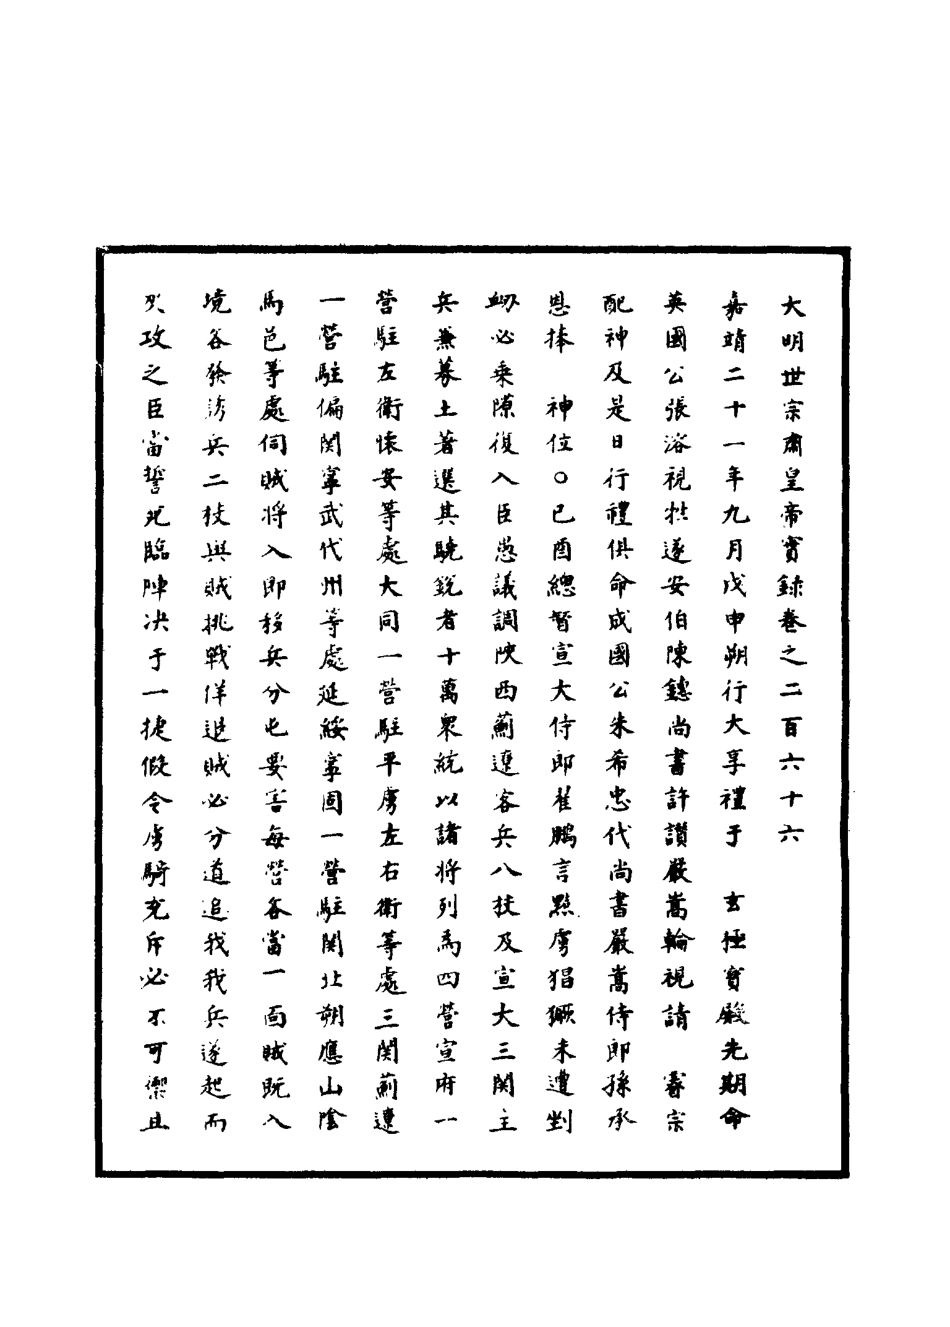 大明世宗肅皇帝實錄卷之二百六十六
嘉靖二十一年九月戊申朔行大享禮于　玄極寳殿先期命
英國公張溶視牲遂安伯陳鏸尚書許讚嚴嵩輪視請　睿宗
配神及是日行禮俱命成國公朱希忠代尚書嚴嵩侍郎孫承
恩捧　神位○已酉總督宣大侍郎翟鵬言黠虜猖獗未遭剉
衂必乘隙復入臣愚議調陝西薊遼客兵八枝及宣大三関主
兵兼募土著選其驍銳者十萬衆統以諸將列為四營宣府一
營駐左衛懷安等處大同一營駐平虜左右衛等處三関薊遼
一營駐偏関寧武代州等處延綏寧固一營駐関北朔應山陰
馬邑等處伺賊將入即移兵分屯要害每營各當一面賊既入
境各發誘兵二枝與賊挑戰佯退賊必分道追我我兵遂起而
夾攻之臣當誓死臨陣决于一捷假令虜騎充斥必不可禦且